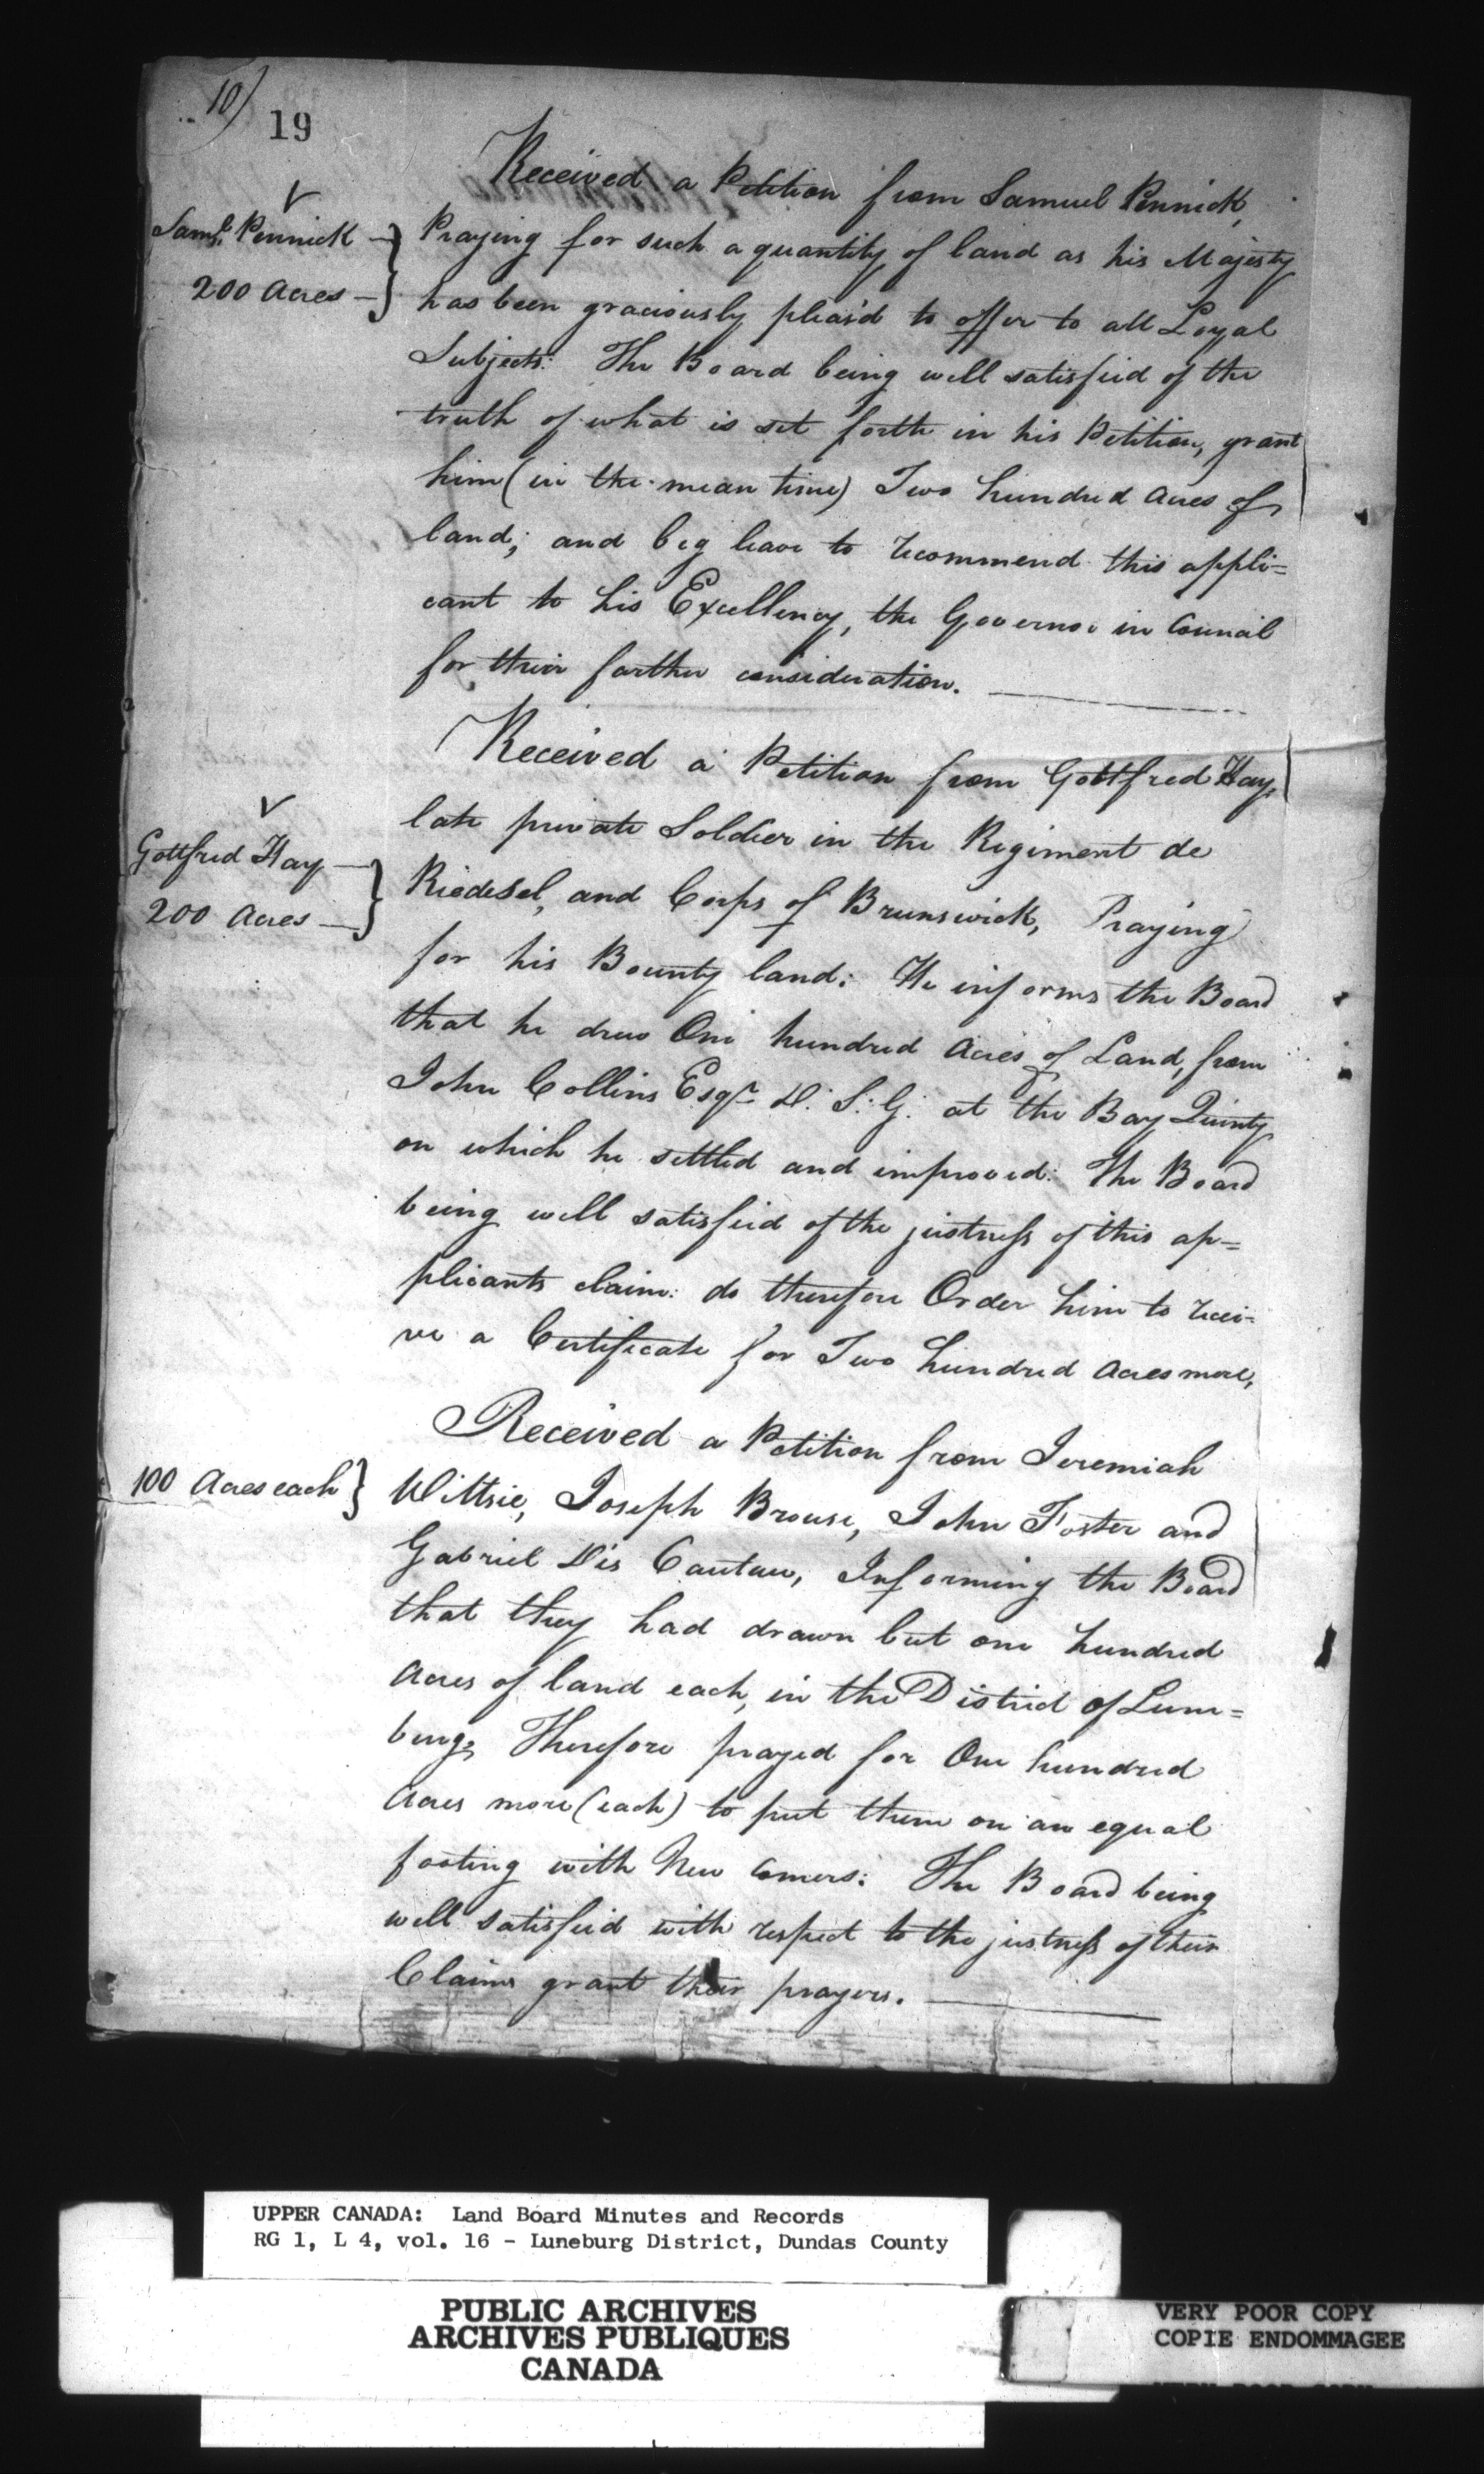 10)
19
Received a Petition from Samuel Pennick,
Saml. Pennick
200 Acres
Praying for such a quantity of land as his Majesty
has been graciously pleas'd to offer to all Loyal
Subjects: The Board being well satisfied of the
truth of what is set forth in his Petition, grant
him (in the mean time) Two hundred Acres of
land; and beg leave to recommend this appli=
cant to his Excellency, the Governor in Council
for their farther consideration.
Received a Petition from Gottfred Hay,
Gottfred Hay
200 Acres
late private Soldier in the Regiment de
Riedesel, and Corps of Brunswick, Praying
for his Bounty land: He informs the Board
that he drew One hundred Acres of Land, from
John Collins Esqr. D. S: G: at the Bay Quinty
on which he settled and improved: The Board
being well satisfied of the justness of this ap=
plicants claim: do therefore Order him to recei=
ve a Certificate for Two hundred Acres more,
Received a Petition from Jeremiah
100 Acres each
Wittsie, Joseph Brouse, John Foster and
Gabriel Dis Cantaw, Informing the Board
that they had drawn but one hundred
Acres of land each, in the District of Lune=
burg, Therefore prayed for One hundred
Acres more (each) to put them on an equal
footing with New Comers: The Board being
well satisfied with respect to the justness of their
Claims grant their prayers.
UPPER CANADA: Land Board Minutes and Records
RG 1, L 4, vol. 16 - Luneburg District, Dundas County
PUBLIC ARCHIVES
ARCHIVES PUBLIQUES
CANADA
VERY POOR COPY
COPIE ENDOMMAGEE